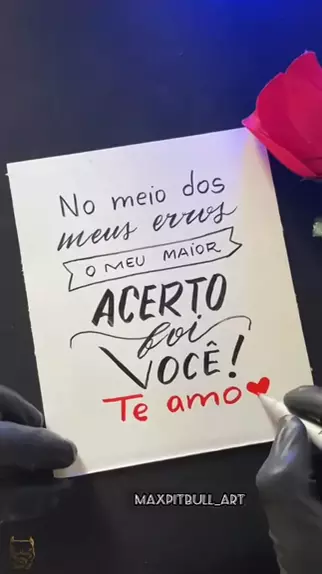 No meio dos
meus erros
O MEU MAIOR
ACERTO
foi
VOCÊ!
Te amo
MAXPITBULL_ART